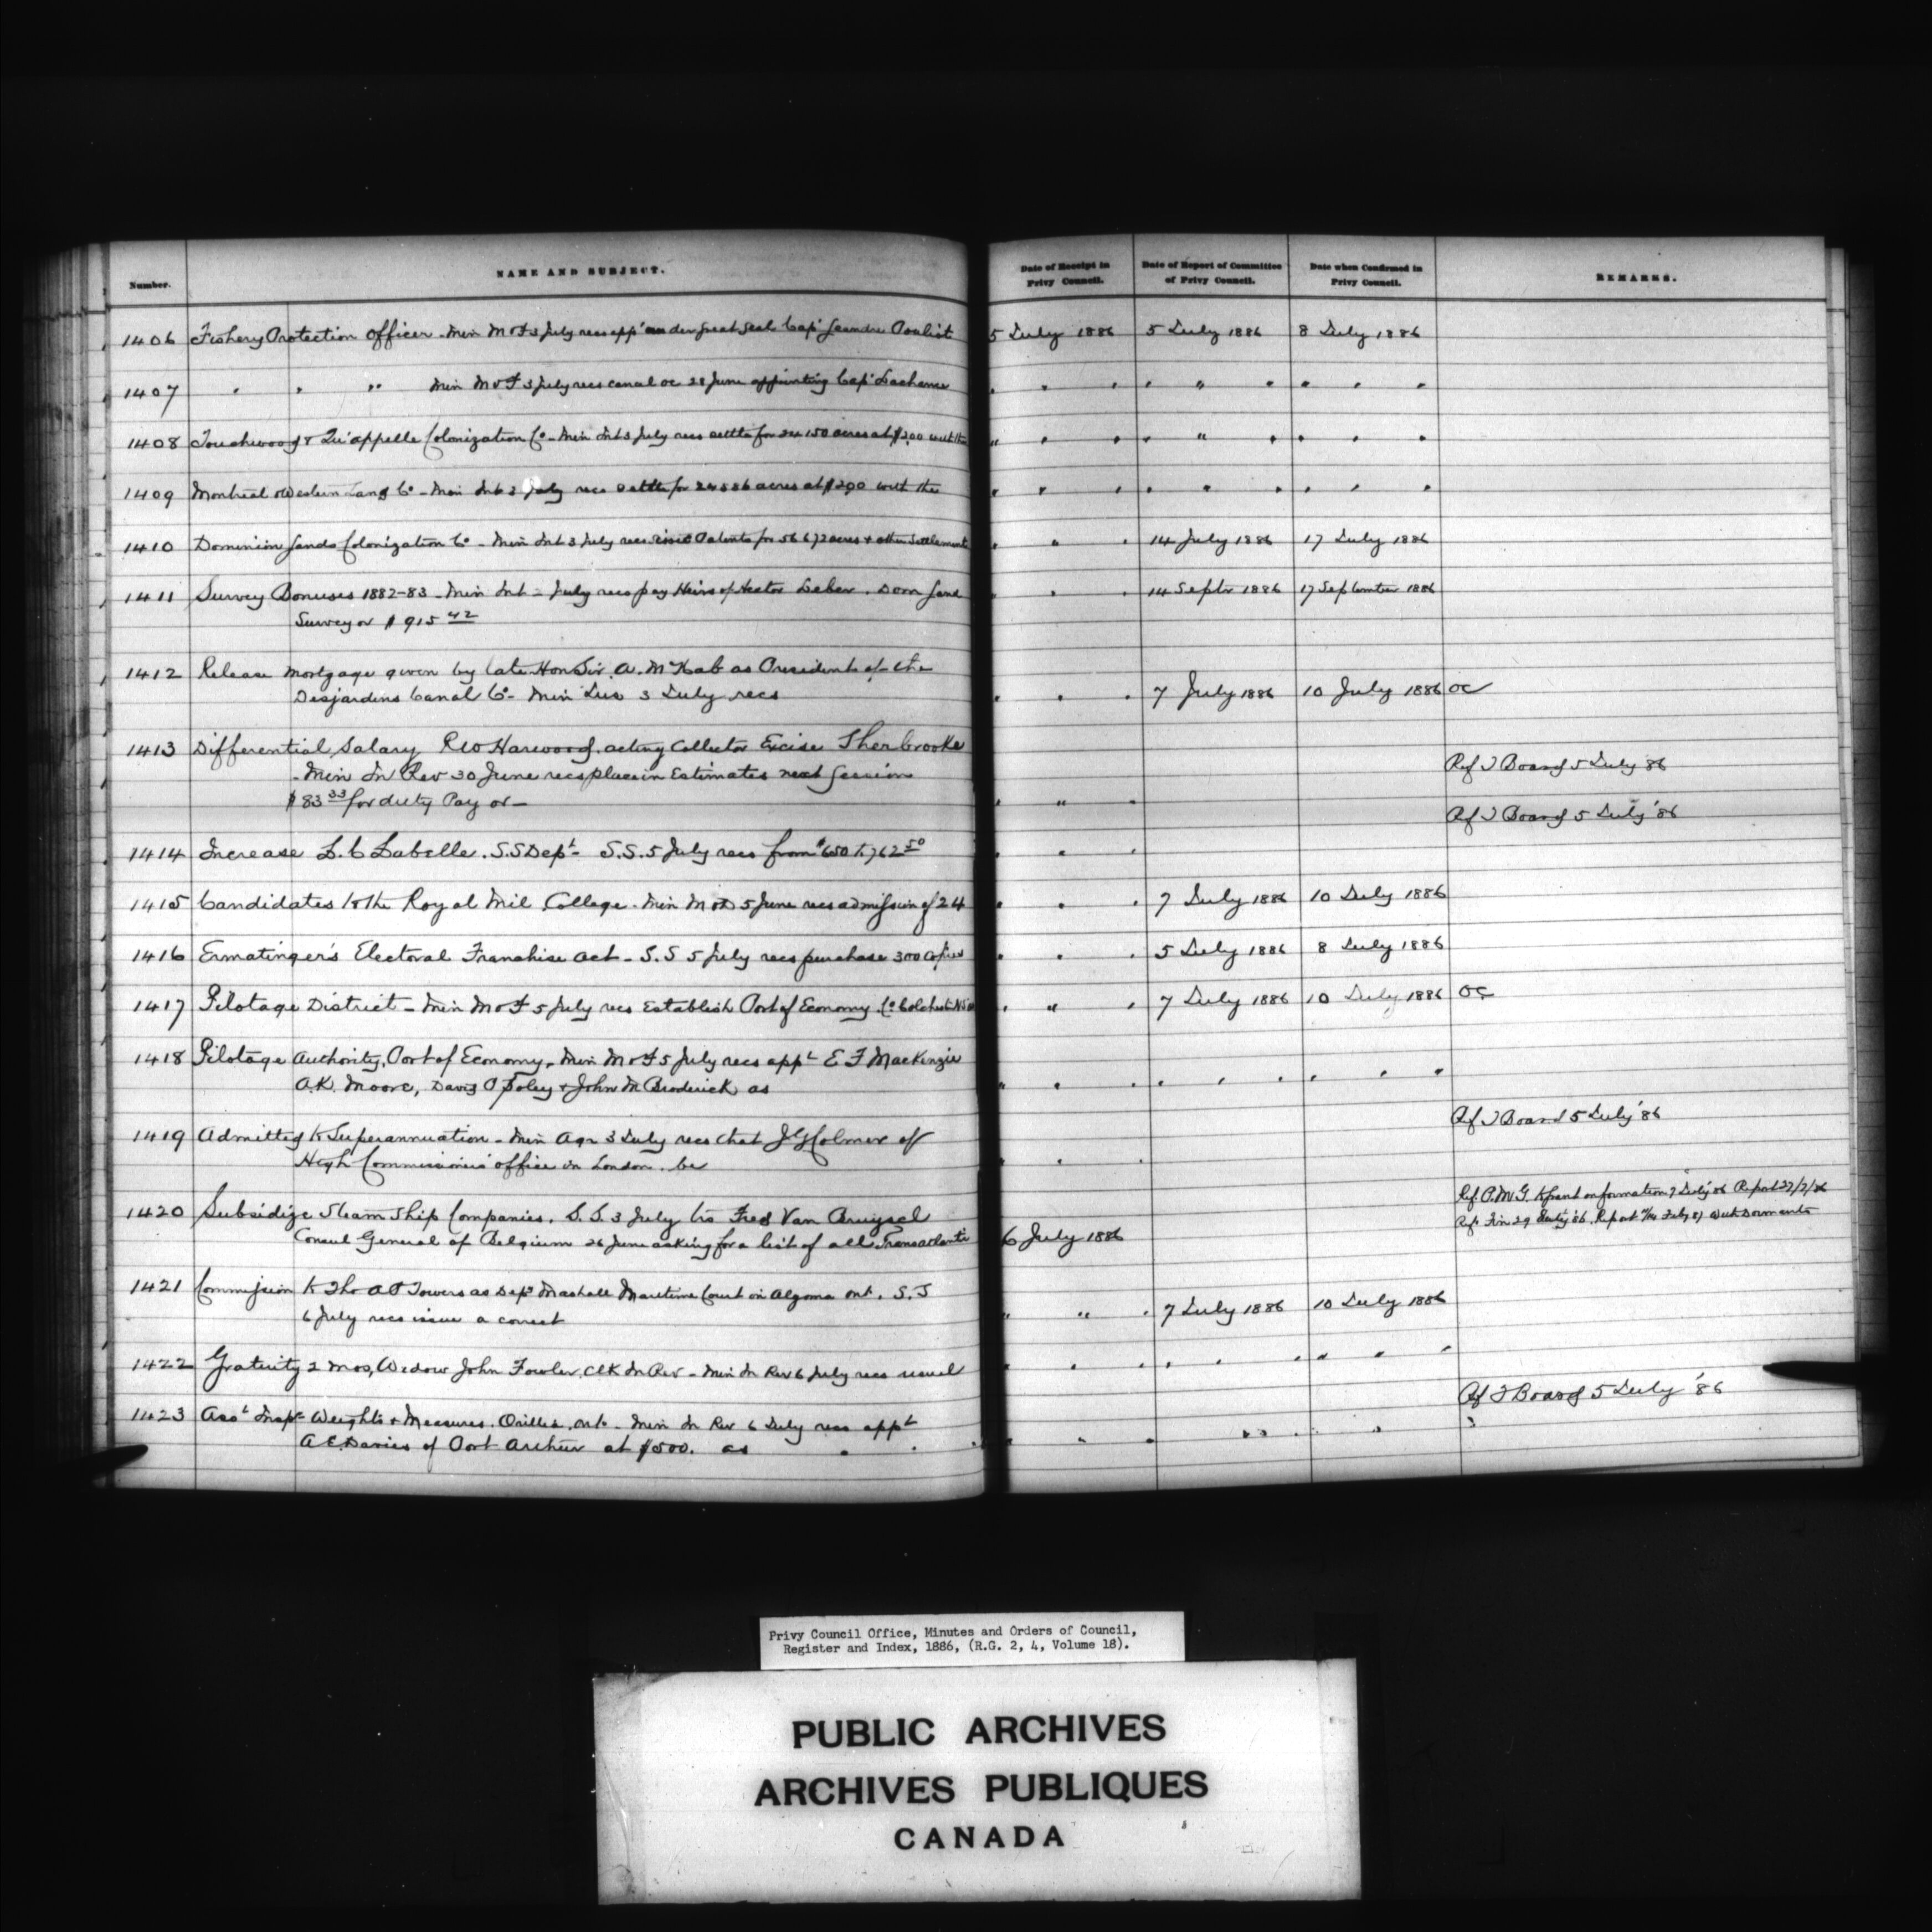 Number.
NAME AND SUBJECT.
Date of Receipt in Privy Council.
Date of Report of Committee of Privy Council.
Date when Confirmed in Privy Council.
REMARKS.
1406 Fishery Protection Officer - Min M & F 3 July recs app' under Great Seal Cap' 5 July 1886 5 July 1886 8 July 1886
1407 " " " Min M & F 3 July recs cancel oc 28 June appointing Cap' Lachance " " " " " " " " "
1408 Touchwood & Qu'appelle Colonization Co - Min Int 3 July recs settle for 24150 acres at $2.00 with the " " " " " " " " "
1409 Montreal & Western Land Co - Min Int 3 July recs settle for acres at $2.00 with the " " " " " " " " "
1410 Dominion Lands Colonization Co - Min Int 3 July recs issue Patents for 56672 acres & other settlement " " " 14 July 1886 17 July 1886
1411 Survey Bonuses 1882-83 - Min Int - July recs pay Heirs of Hector Leber. Dom Land " " " 14 Septr 1886 17 September 1886
Surveyor $915 42
1412 Release mortgage given by late Hon Sir A. McNab as President of the
Desjardins Canal Co - Min Jus 3 July recs " " " 7 July 1886 10 July 1886 OC
1413 Differential Salary R W Harwood, acting Collector Excise Sherbrooke
- Min In Rev 30 June recs place in Estimates next Session Ref T Board 5 July 86
$83 33 for duty Pay as - " " "
Ref T Board 5 July '86
1414 Increase L. C Labelle. S.S Dept - S.S. 5 July recs from $650 to 762 50 " " "
1415 Candidates to the Royal Mil College - Min M & D 5 June recs admission of 24 " " " 7 July 1886 10 July 1886
1416 Ermatinger's Electoral Franchise Act - S.S 5 July recs purchase 300 Copies " " " 5 July 1886 8 July 1886
1417 Pilotage District - Min M & F 5 July recs Establish Port of Economy Co Colchester NS as " " " 7 July 1886 10 July 1886 OC
1418 Pilotage Authority, Port of Economy, Min M & F 5 July recs appt E F MacKenzie
A.K. Moore, David P Foley & John M Broderick as " " " " " " " " "
1419 Admitted to Superannuation - Min Agr 3 July recs that J G Colmer of Ref T Board 5 July '86
High Commissioner's office in London be " " "
1420 Subsidize Steam Ship Companies. S.S. 3 July trs Fred Van Bruysel Ref. P.M.G. to grant information 7 July 86 Report 27/7/86
Consul General of Belgium 26 June asking for a list of all Transatlantic 6 July 1886 Ref. Fin 29 July 86. Report Feby 87
1421 Commission to Tho A P Towers as Depy Marshall Maritime Court in Algoma Ont. S.S
6 July recs issue a correct " " " 7 July 1886 10 July 1886
1422 Gratuity 2 mos, Widow John Fowler, Clk In Rev - Min In Rev 6 July recs usual " " " " " " " " "
1423 Asst Inspr Weights & Measures. Orillia. Ont - Min In Rev 6 July recs appt Ref T Board 5 July '86
A E Davies of Port Arthur at $500. as " " " " " "
Privy Council Office, Minutes and Orders of Council,
Register and Index, 1886, (R.G. 2, 4, Volume 18).
PUBLIC ARCHIVES
ARCHIVES PUBLIQUES
CANADA